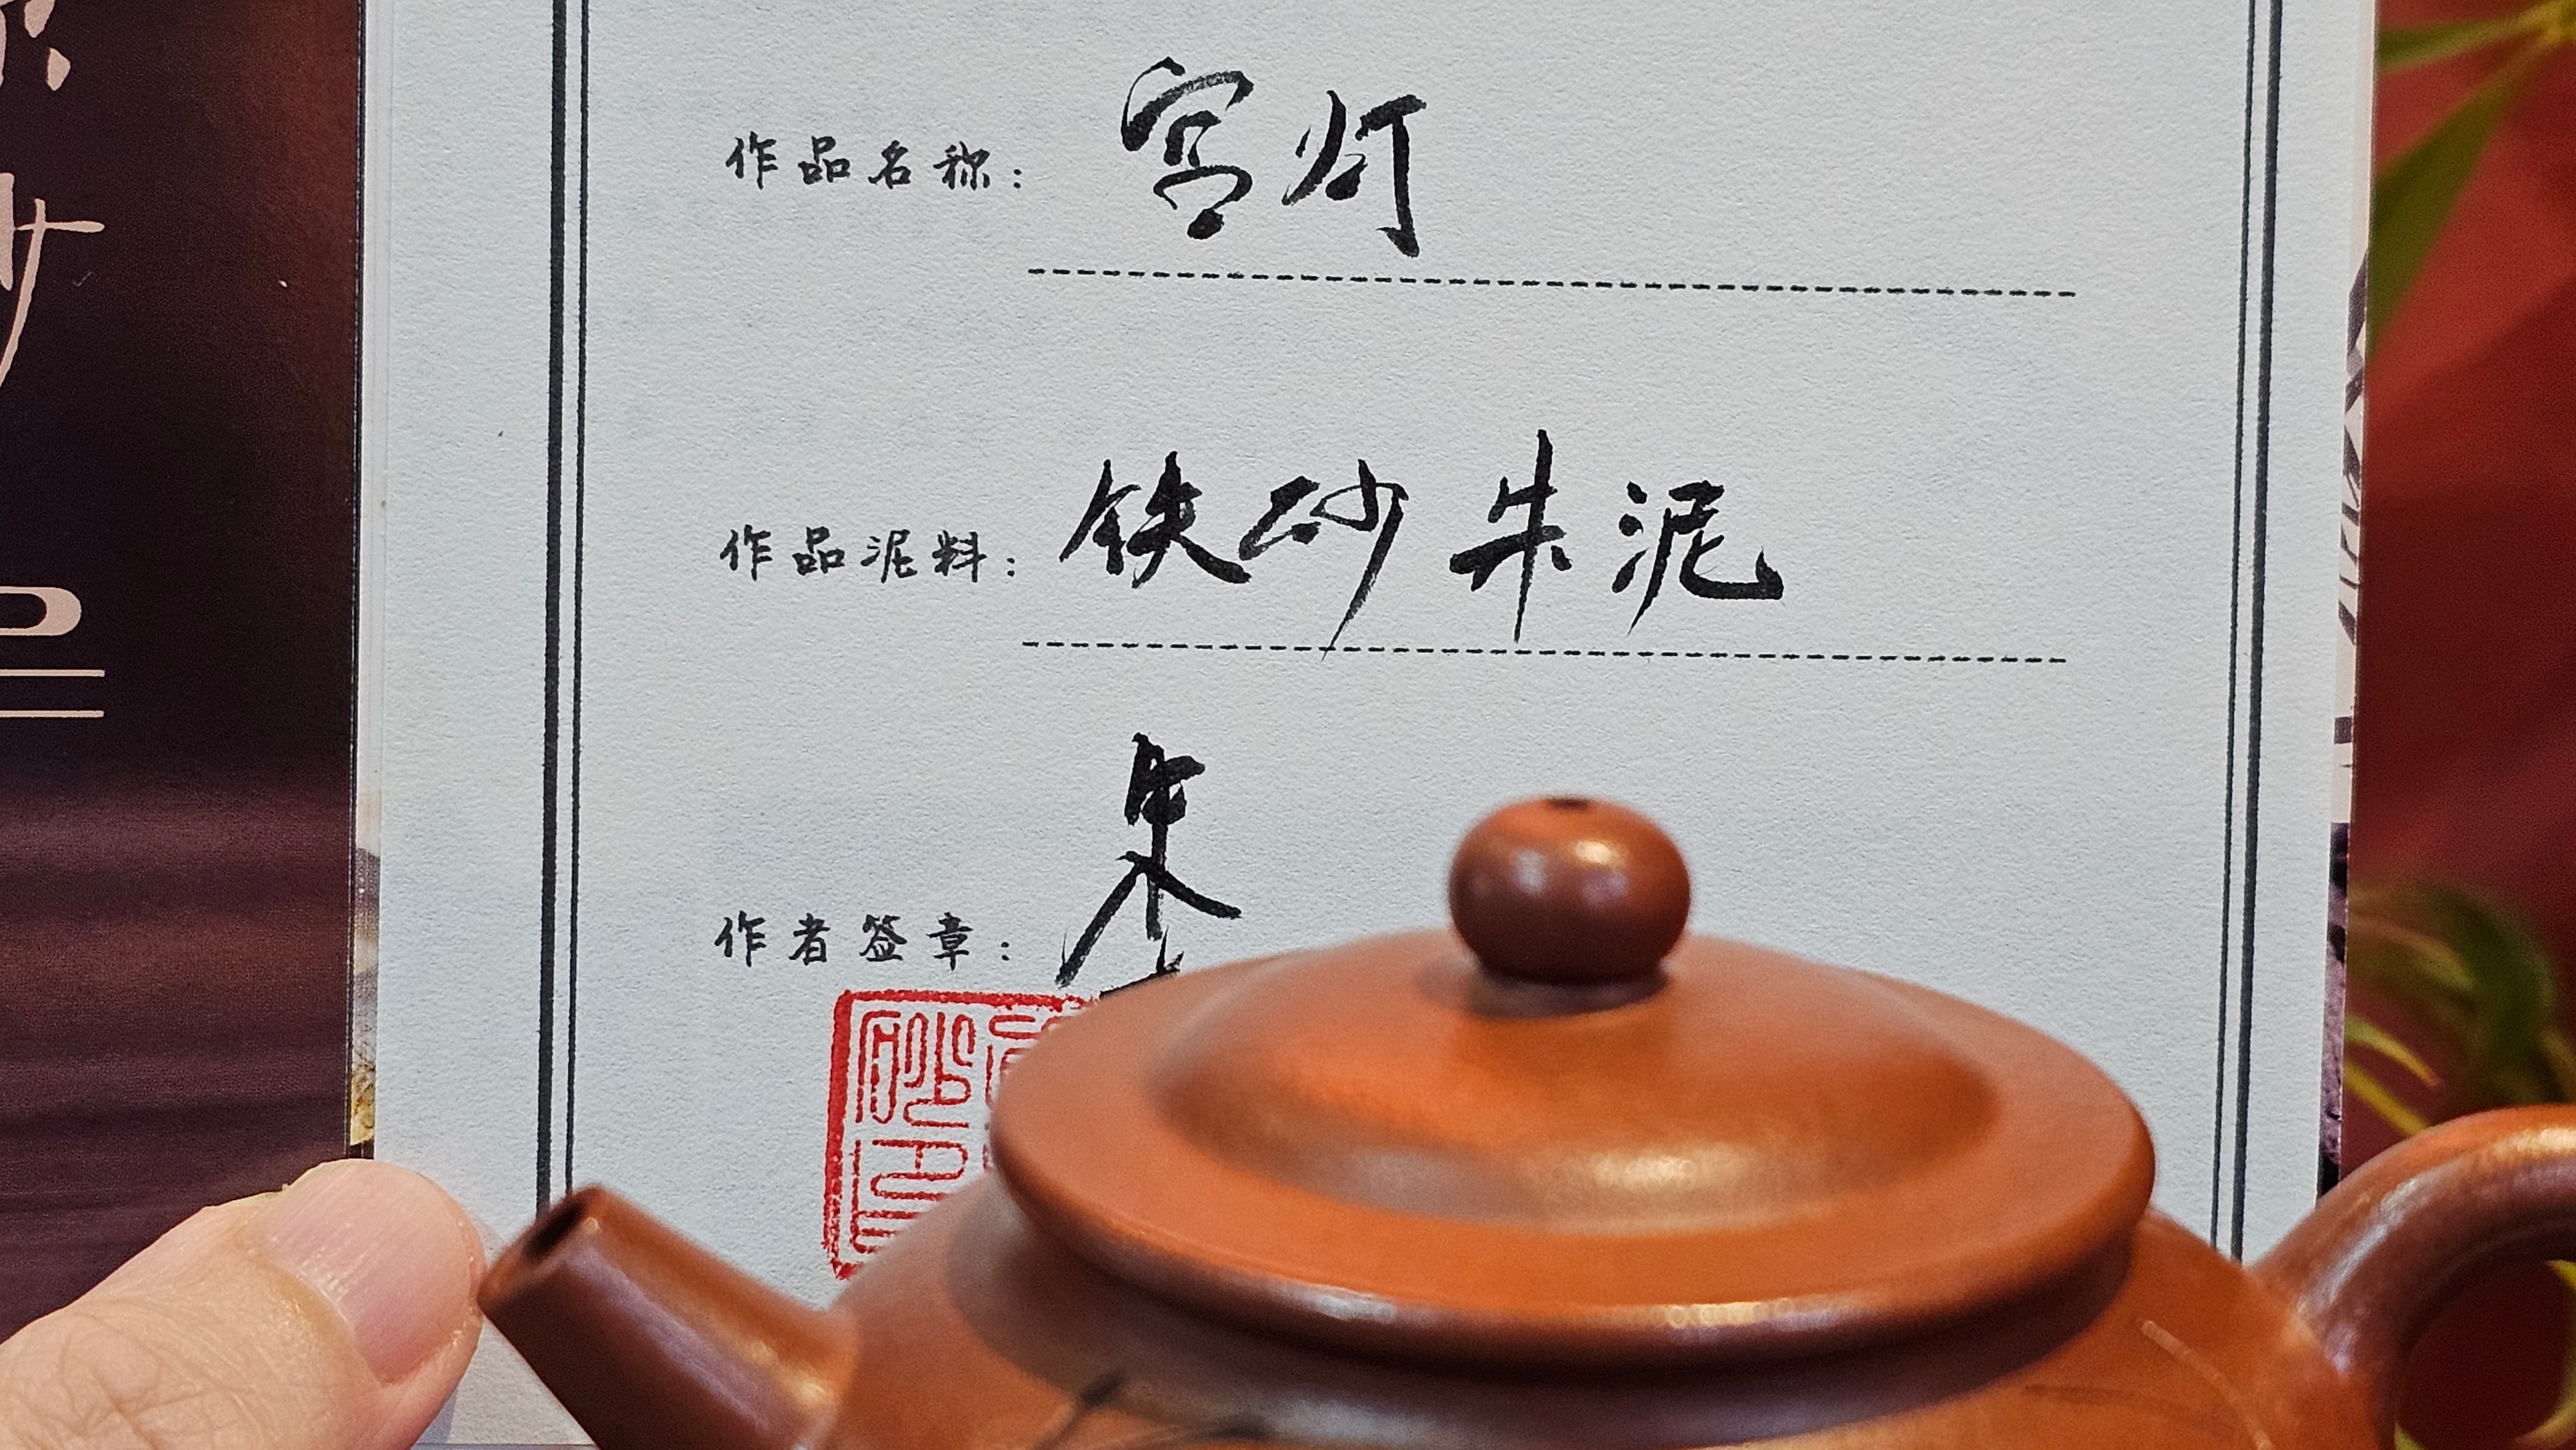 作品名称： 宫灯
作品泥料： 铁砂朱泥
作者签章：